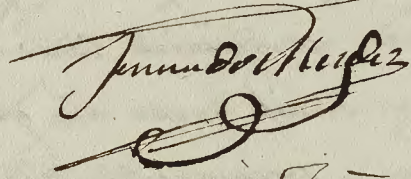 Fernando Mendez